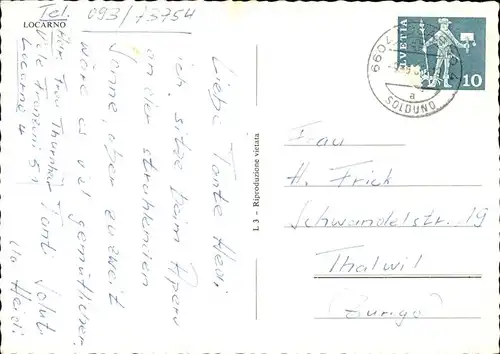 Tel. 093/73754
LOCARNO
Liebe Tante Hedi
ich sitze beim Apero
an der strahlenden
Sonne, aber zu zweit
wäre es viel gemütlicher.
Tanti Saluti
tua Heidi
Frau Thurnherr
Viale Franzoni 59
Locarno 4
L 3 – Riproduzione vietata
HELVETIA
10
6604
a
SOLDUNO
Frau
H. Frick
Schwandelstr. 19
Thalwil
(Zurigo)